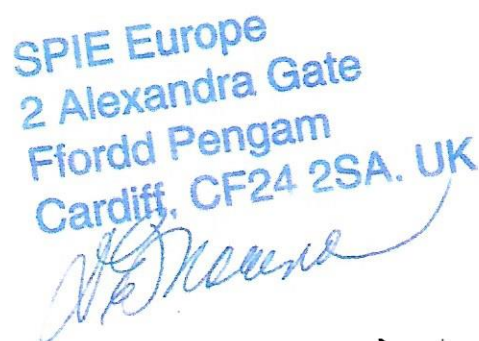 SPIE Europe
2 Alexandra Gate
Ffordd Pengam
Cardiff, CF24 2SA. UK